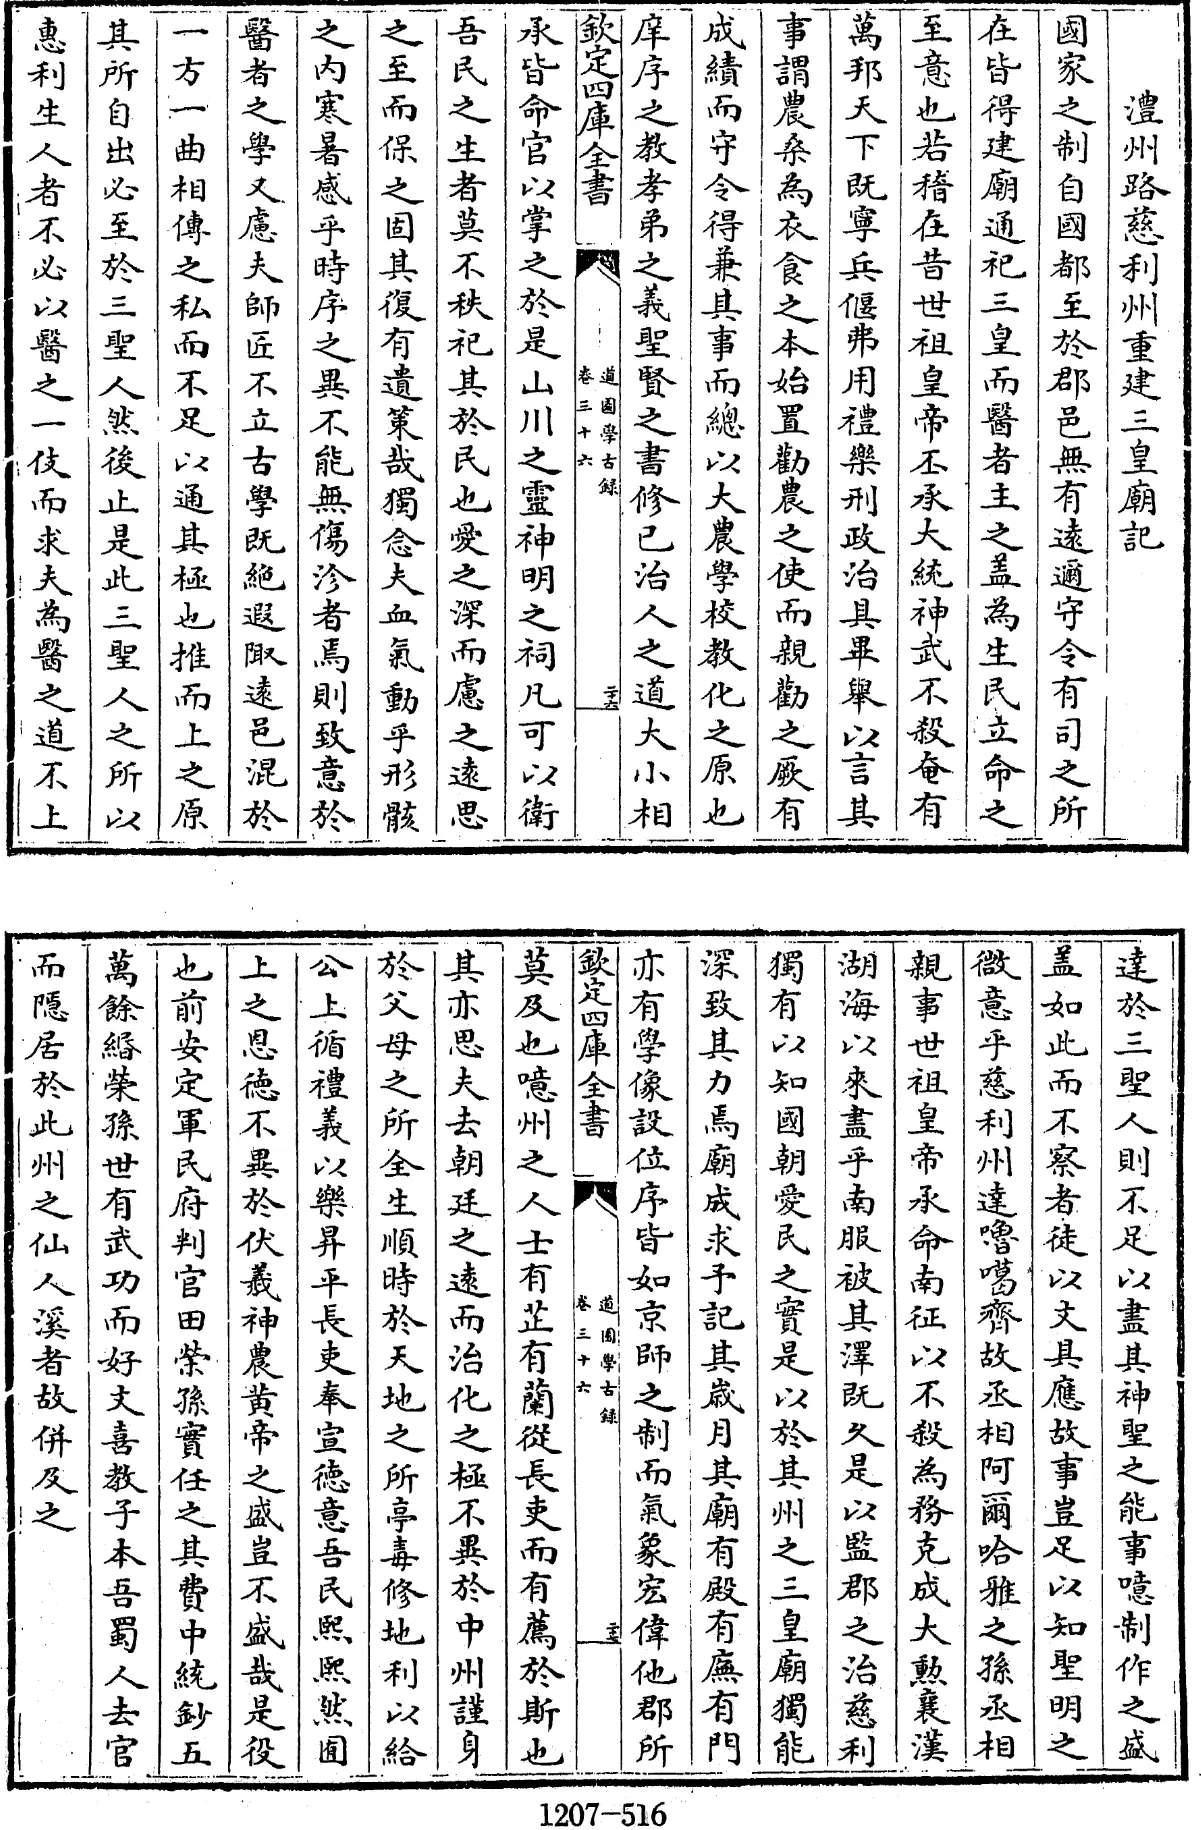 澧州路慈利州重建三皇廟記
國家之制自國都至於郡邑無有逺邇守令有司之所
在皆得建廟通祀三皇而醫者主之蓋為生民立命之
至意也若稽在昔世祖皇帝丕承大統神武不殺奄有
萬邦天下既寧兵偃弗用禮樂刑政治具畢舉以言其
事謂農桑為衣食之本始置勸農之使而親勸之厥有
成績而守令得兼其事而總以大農學校教化之原也
庠序之教孝弟之義聖賢之書修己治人之道大小相
欽定四庫全書
道園學古録
卷三十六
二十六
承皆命官以掌之於是山川之靈神明之祠凡可以衛
吾民之生者莫不秩祀其於民也愛之深而慮之逺思
之至而保之固其復有遺策哉獨念夫血氣動乎形骸
之内寒暑感乎時序之異不能無傷沴者焉則致意於
醫者之學又慮夫師匠不立古學既絶遐陬逺邑混於
一方一曲相傳之私而不足以通其極也推而上之原
其所自出必至於三聖人然後止是此三聖人之所以
惠利生人者不必以醫之一伎而求夫為醫之道不上
達於三聖人則不足以盡其神聖之能事噫制作之盛
蓋如此而不察者徒以文具應故事豈足以知聖明之
微意乎慈利州達嚕噶齊故丞相阿爾哈雅之孫丞相
親事世祖皇帝承命南征以不殺為務克成大勲襄漢
湖海以來盡乎南服被其澤既久是以監郡之治慈利
獨有以知國朝愛民之實是以於其州之三皇廟獨能
深致其力焉廟成求予記其歲月其廟有殿有廡有門
亦有學像設位序皆如京師之制而氣象宏偉他郡所
欽定四庫全書
道園學古録
卷三十六
莫及也噫州之人士有芷有蘭從長吏而有薦於斯也
其亦思夫去朝廷之逺而治化之極不異於中州謹身
於父母之所全生順時於天地之所亭毒修地利以給
公上循禮義以樂昇平長吏奉宣徳意吾民熙熙然囿
上之恩徳不異於伏羲神農黄帝之盛豈不盛哉是役
也前安定軍民府判官田榮孫實任之其費中統鈔五
萬餘緡榮孫世有武功而好文喜教子本吾蜀人去官
而隱居於此州之仙人溪者故併及之
1207-516